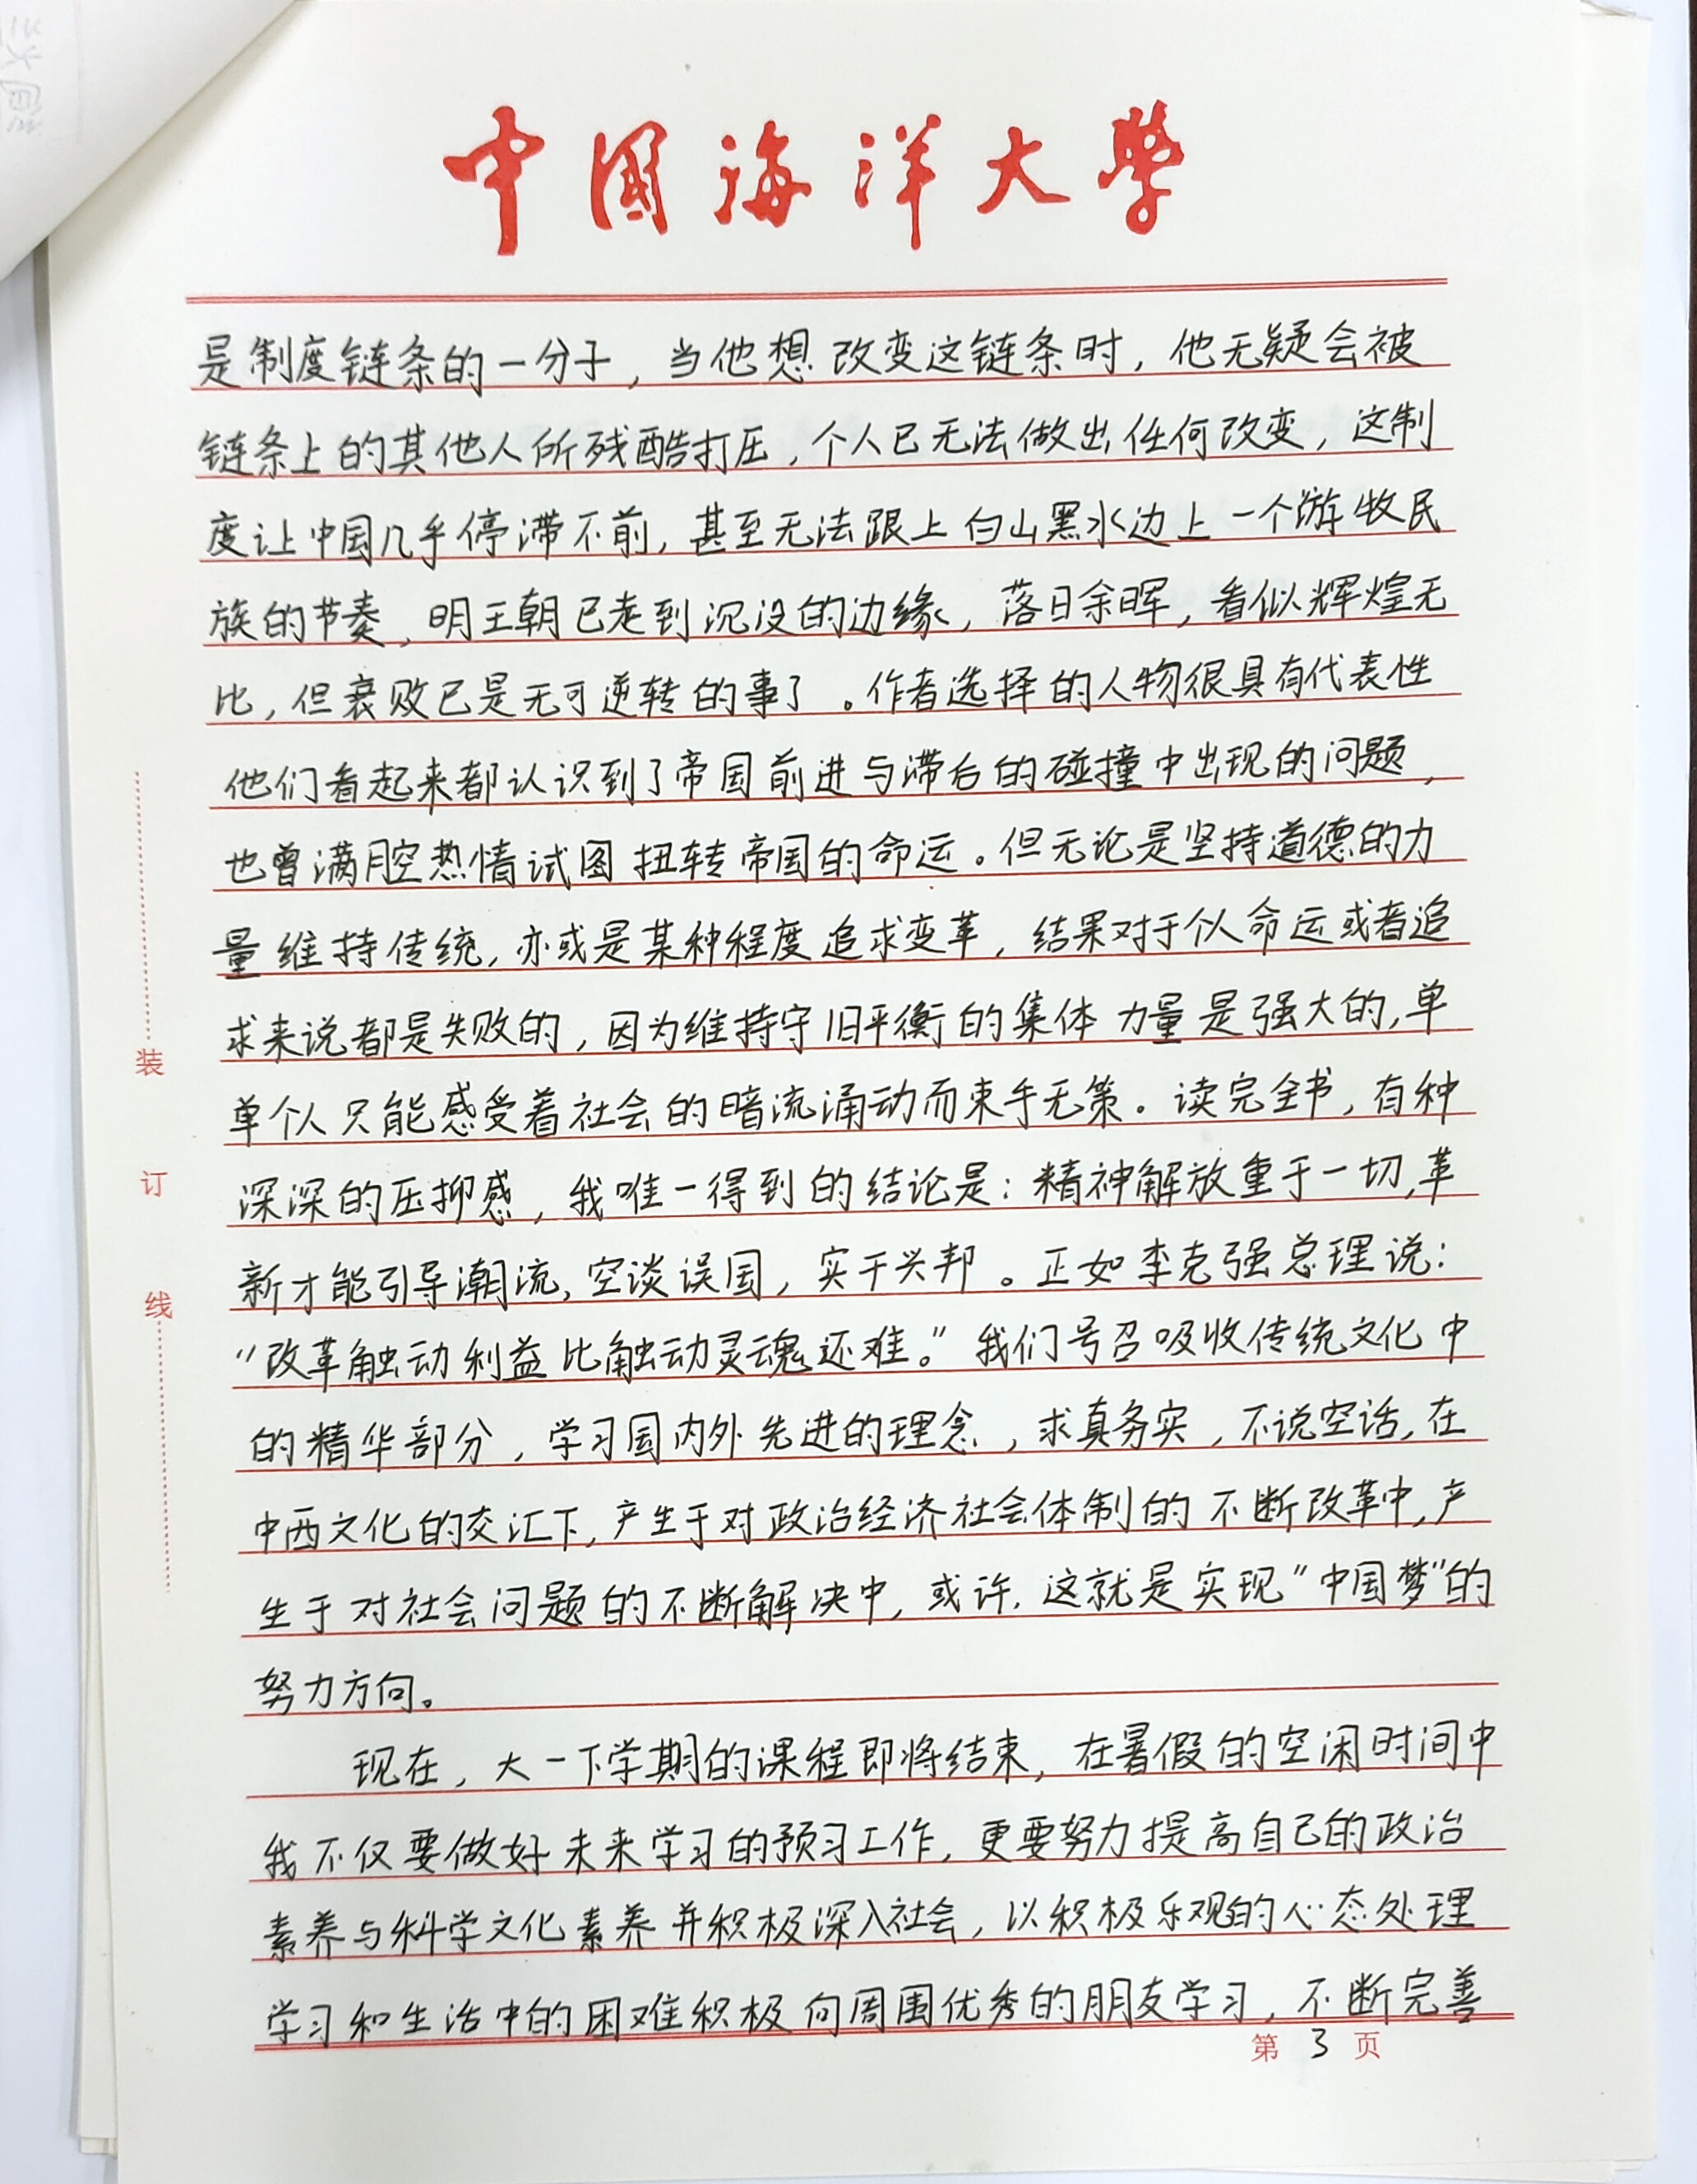 中国海洋大学
是制度链条的一分子，当他想改变这链条时，他无疑会被
链条上的其他人所残酷打压，个人已无法做出任何改变，这制
度让中国几乎停滞不前，甚至无法跟上白山黑水边上一个游牧民
族的节奏，明王朝已走到沉没的边缘，落日余晖，看似辉煌无
比，但衰败已是无可逆转的事了。作者选择的人物很具有代表性
他们看起来都认识到了帝国前进与滞后的碰撞中出现的问题，
也曾满腔热情试图扭转帝国的命运。但无论是坚持道德的力
量维持传统，亦或是某种程度追求变革，结果对于个人命运或者追
求来说都是失败的，因为维持守旧平衡的集体力量是强大的，单
单个人只能感受着社会的暗流涌动而束手无策。读完全书，有种
深深的压抑感，我唯一得到的结论是：精神解放重于一切，革
新才能引导潮流，空谈误国，实干兴邦。正如李克强总理说：
“改革触动利益比触动灵魂还难。”我们号召吸收传统文化中
的精华部分，学习国内外先进的理念，求真务实，不说空话，在
中西文化的交汇下，产生于对政治经济社会体制的不断改革中，产
生于对社会问题的不断解决中，或许，这就是实现“中国梦”的
努力方向。
现在，大一下学期的课程即将结束，在暑假的空闲时间中
我不仅要做好未来学习的预习工作，更要努力提高自己的政治
素养与科学文化素养并积极深入社会，以积极乐观的心态处理
学习和生活中的困难积极向周围优秀的朋友学习，不断完善
第 3 页
装
订
线